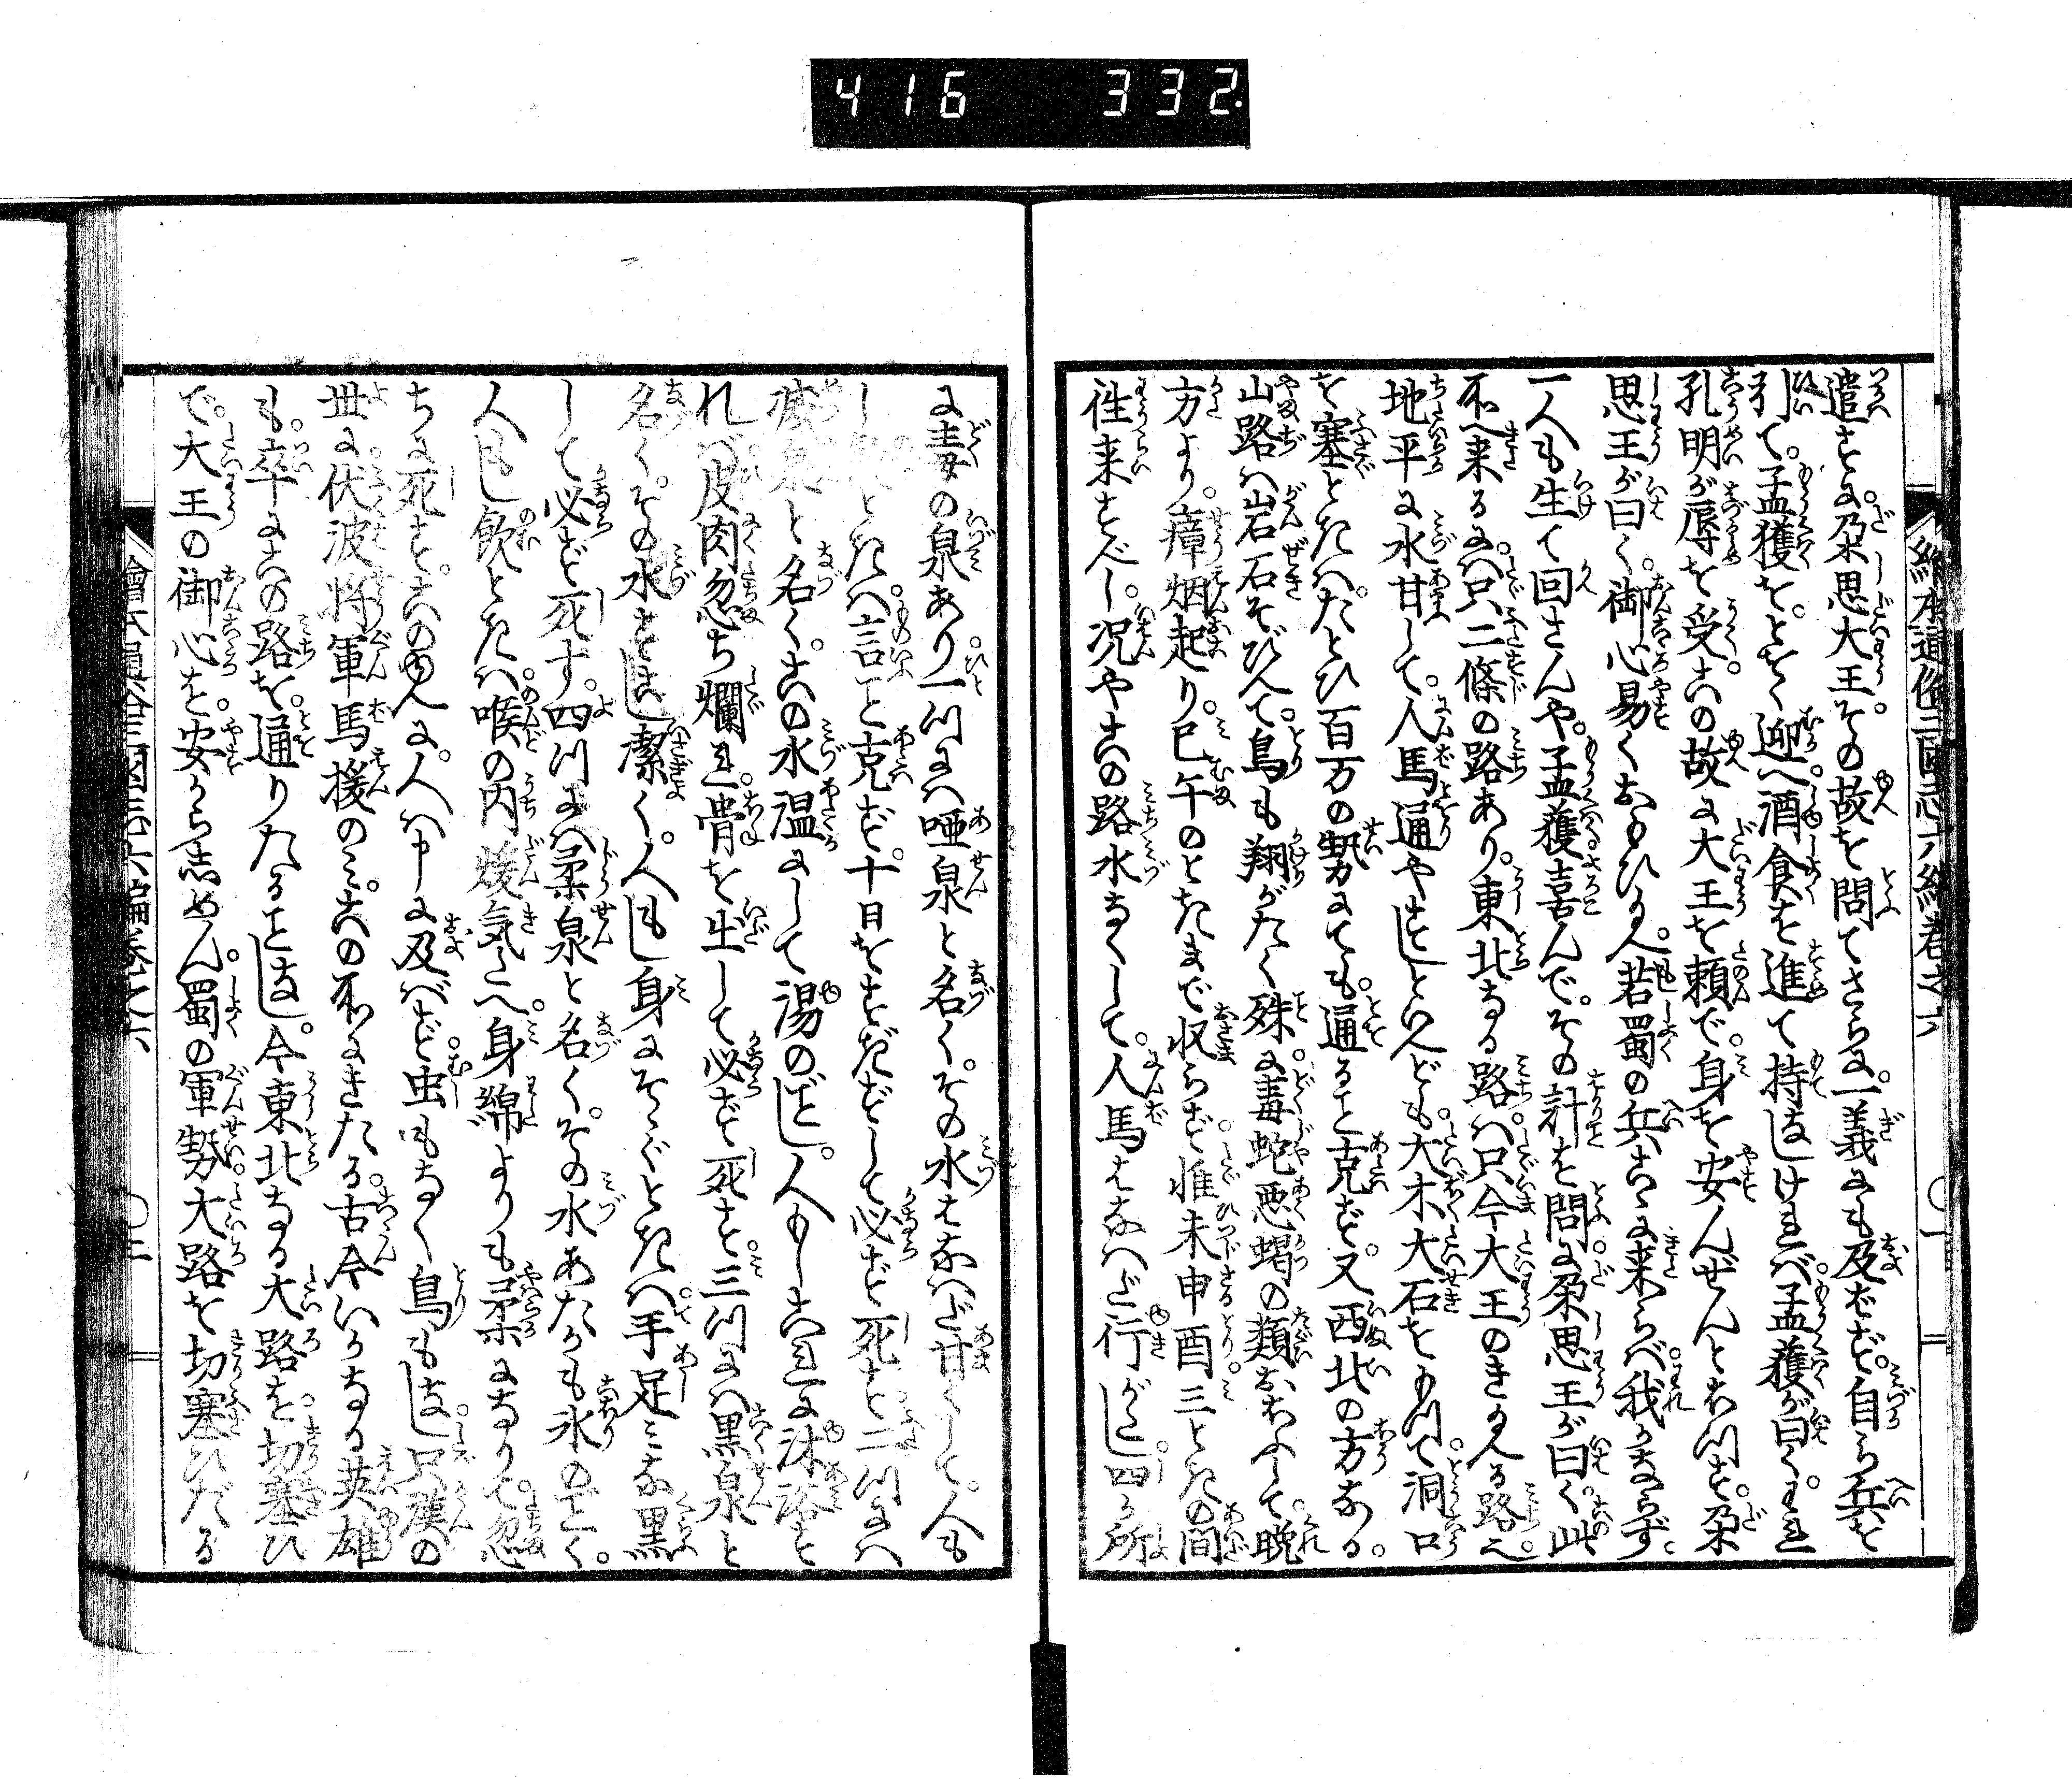 416 332
遣すに。朶思大王。その故を問てさらに。一義にも及ばず。自ら兵を
引て。孟獲を。とく迎へ。酒食を進て持なしければ。孟獲が曰く。われ
孔明が辱を受。この故に大王を頼で。身を安んぜんとおつす。朶
思王が曰く。御心易くおもひ玉へ。若蜀の兵こゝに来らば。我かならず。
一人も生て回さんや。孟獲喜んで。その計を問に。朶思王が曰く。此
所へ来るには。只二條の路あり。東北なる路は。只今大王のき玉へる路也。
地平に水甘して。人馬通やすしといへども。大木大石をもつて。洞口
を塞ときは。たとひ百万の勢にても。通ること克ず。又西北の方なる。
山路は岩石そびへて。鳥も翔がたく。殊に毒蛇悪蝎の類おふして。晩
方より。瘴烟起り。巳午のときまで収らず。惟未申酉三ときの間
往来すべし。況やこの路水なくして。人馬ともな行がたし。四ケ所
に毒の泉あり。一つには唖泉と名く。その水はなはだ甘くして。人も
し飲ときは。言こと克ず。十日をすぎずして必ず死す。二つには
滅泉と名く。この水温にして湯のごとし。人もしこれに沐浴す
れば。皮肉忽ち爛れ。骨を出して必ず死す。三つには黒泉と
名く。その水すこし潔く。人もし身にそゝぐときは。手足みな黒
して必ず死す。四つには柔泉と名く。その水あたかも氷のごとく。
人もし飲ときは。喉の内煖気たへ。身綿よりも柔になりて。忽
ちに死す。このゆへに。人は申に及ばず。虫もなく鳥もなし。只漢の
世に伏波将軍馬援のみ。この所にきたる。古今いかなる英雄
も。卒にこの路を。通りたることなし。今東北なる大路を。切塞ひ
で。大王の御心を。安からしめん。蜀の軍勢。大路を切塞ひだる